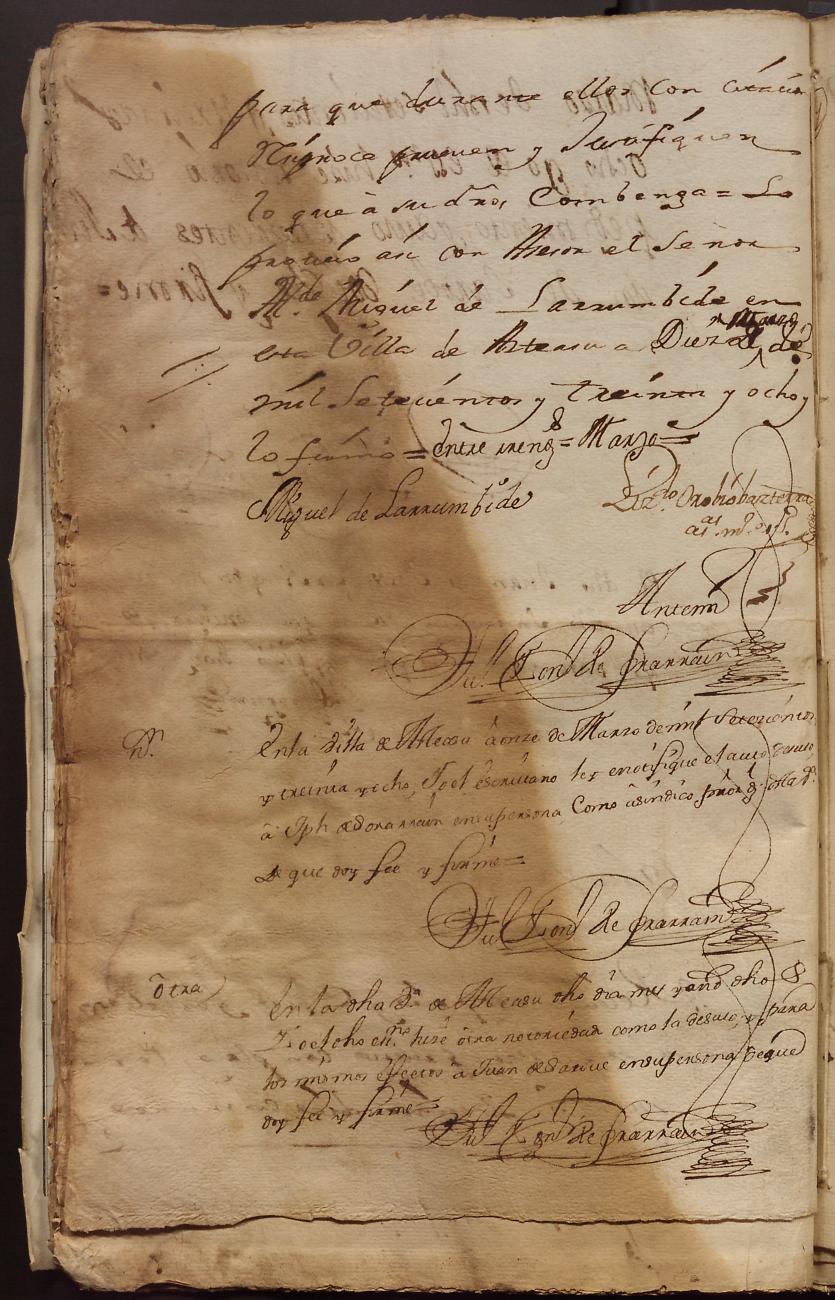 para que durante ellos con citacion
Reziproca prueuen y Justifiquen
lo que à su dro, Combenga = Lo
proueio asi con Asesor el Señor
Alde Miguel de Larrumbide en
esta Villa de Asteasu a Diez de Marzo de
mil Setecientos y treinta y ocho y
lo firmo = entre rrengs = Marzo =
Miguel de Larrumbide
Lizdo Orobiobazterra
Antemi
Ful Con de Yrarrain
Nn.
En la Villa de Asteasu à onze de Marzo de mil Setecientos
y treinta y ocho, Yo el escriuano ley enotifique el auto desuso
à Jph de Dorarrain ensupersona Como à sindico prōr gl dela Va
de que doy fee y firmè =
Ful Con de Yrarrain
òtra
En la dha Va de Asteasu dho dia mes y año dho
Yo el dho essno hizè òtra notoriedad como la desuso, y para
los mismos efectos à Juan de ensupersona deque
doy fee y firmè =
Ful Con de Yrarrain